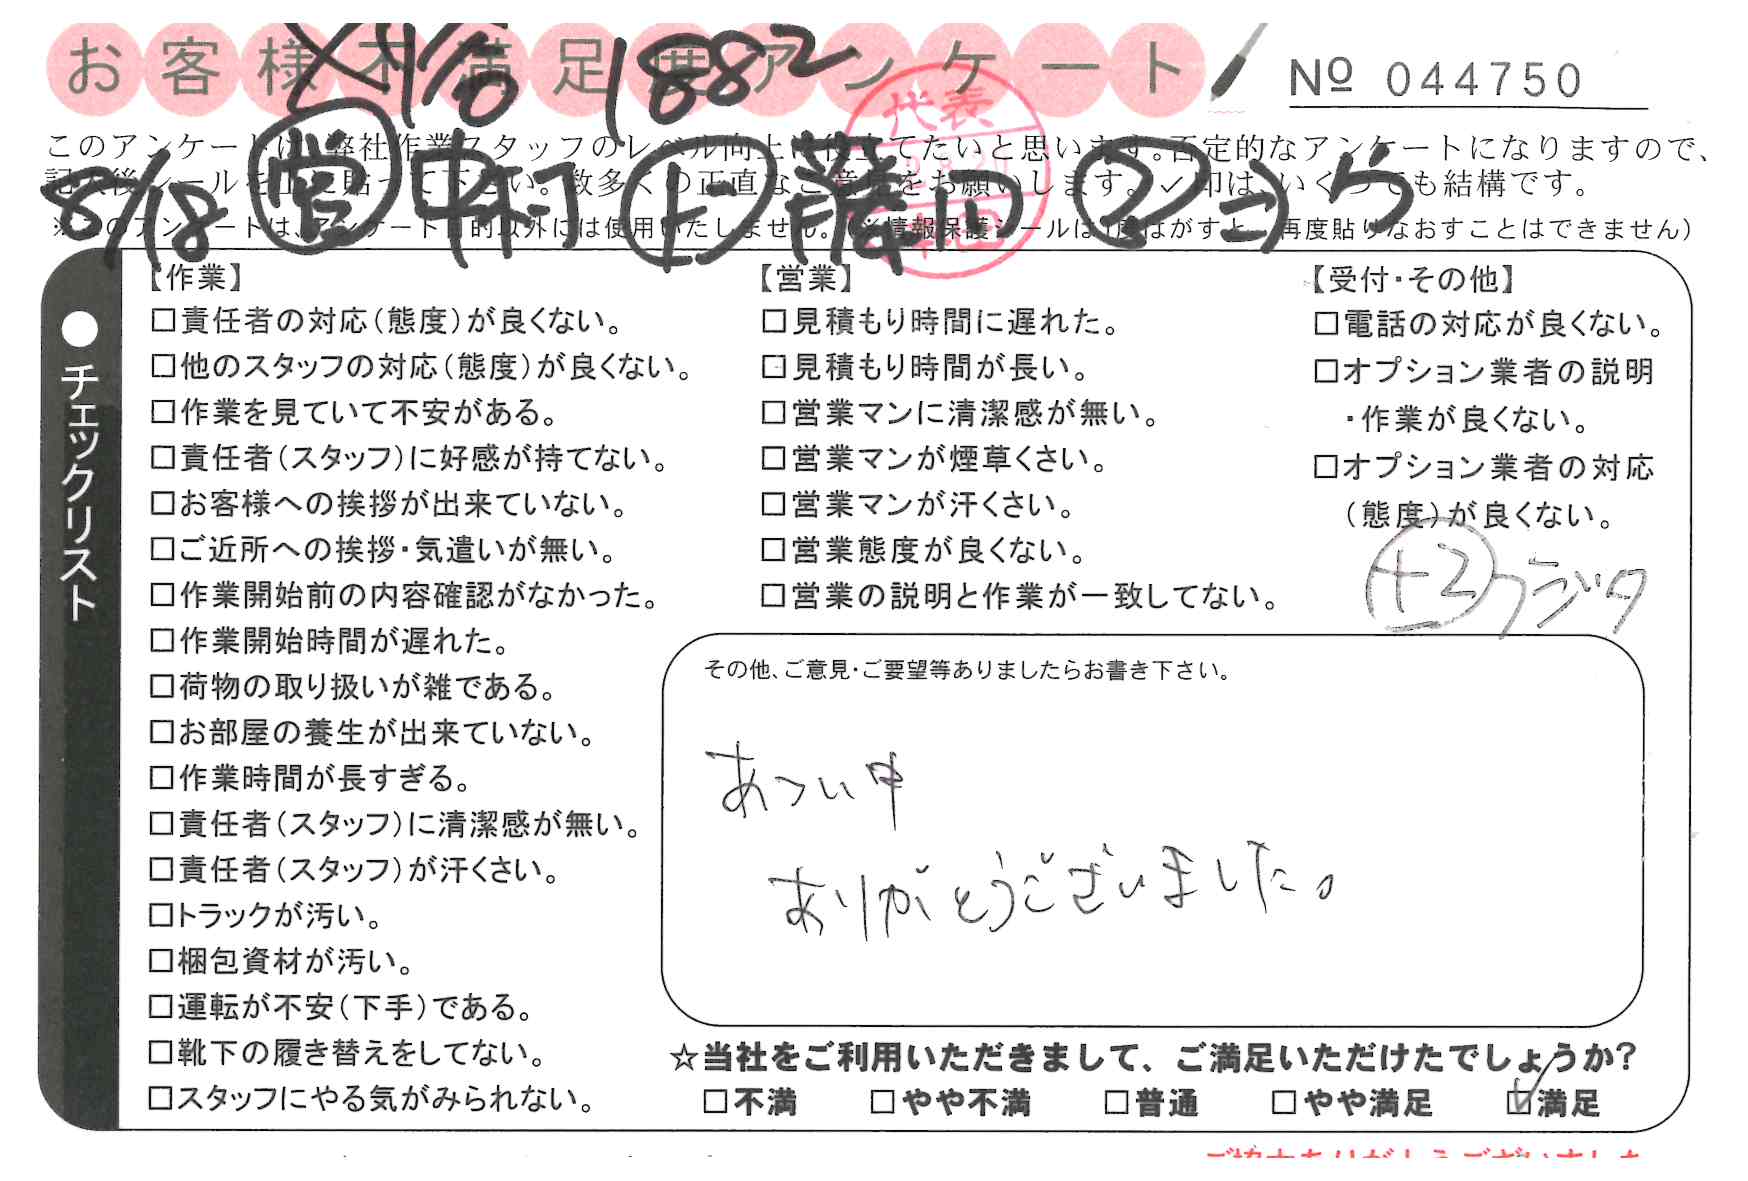 お客様不満足度アンケート
№ 044750
1882
このアンケートは、弊社作業スタッフのレベル向上に役立てたいと思います。否定的なアンケートになりますので、
記入後シールを上に貼って下さい。数多くの正直なご意見をお願いします。✓印は、いくつでも結構です。
※このアンケートは、アンケート目的以外には使用いたしません。(※情報保護シールは1度はがすと、再度貼りなおすことはできません)
8/18 営 中村 上
代表
●チェックリスト
【作業】
□責任者の対応(態度)が良くない。
□他のスタッフの対応(態度)が良くない。
□作業を見ていて不安がある。
□責任者(スタッフ)に好感が持てない。
□お客様への挨拶が出来ていない。
□ご近所への挨拶・気遣いが無い。
□作業開始前の内容確認がなかった。
□作業開始時間が遅れた。
□荷物の取り扱いが雑である。
□お部屋の養生が出来ていない。
□作業時間が長すぎる。
□責任者(スタッフ)に清潔感が無い。
□責任者(スタッフ)が汗くさい。
□トラックが汚い。
□梱包資材が汚い。
□運転が不安(下手)である。
□靴下の履き替えをしてない。
□スタッフにやる気がみられない。
【営業】
□見積もり時間に遅れた。
□見積もり時間が長い。
□営業マンに清潔感が無い。
□営業マンが煙草くさい。
□営業マンが汗くさい。
□営業態度が良くない。
□営業の説明と作業が一致してない。
【受付・その他】
□電話の対応が良くない。
□オプション業者の説明
・作業が良くない。
□オプション業者の対応
(態度)が良くない。
+2
その他、ご意見・ご要望等ありましたらお書き下さい。
あつい中
ありがとうございました。
☆当社をご利用いただきまして、ご満足いただけたでしょうか?
□不満 □やや不満 □普通 □やや満足 ☑満足
ご協力ありがとうございました